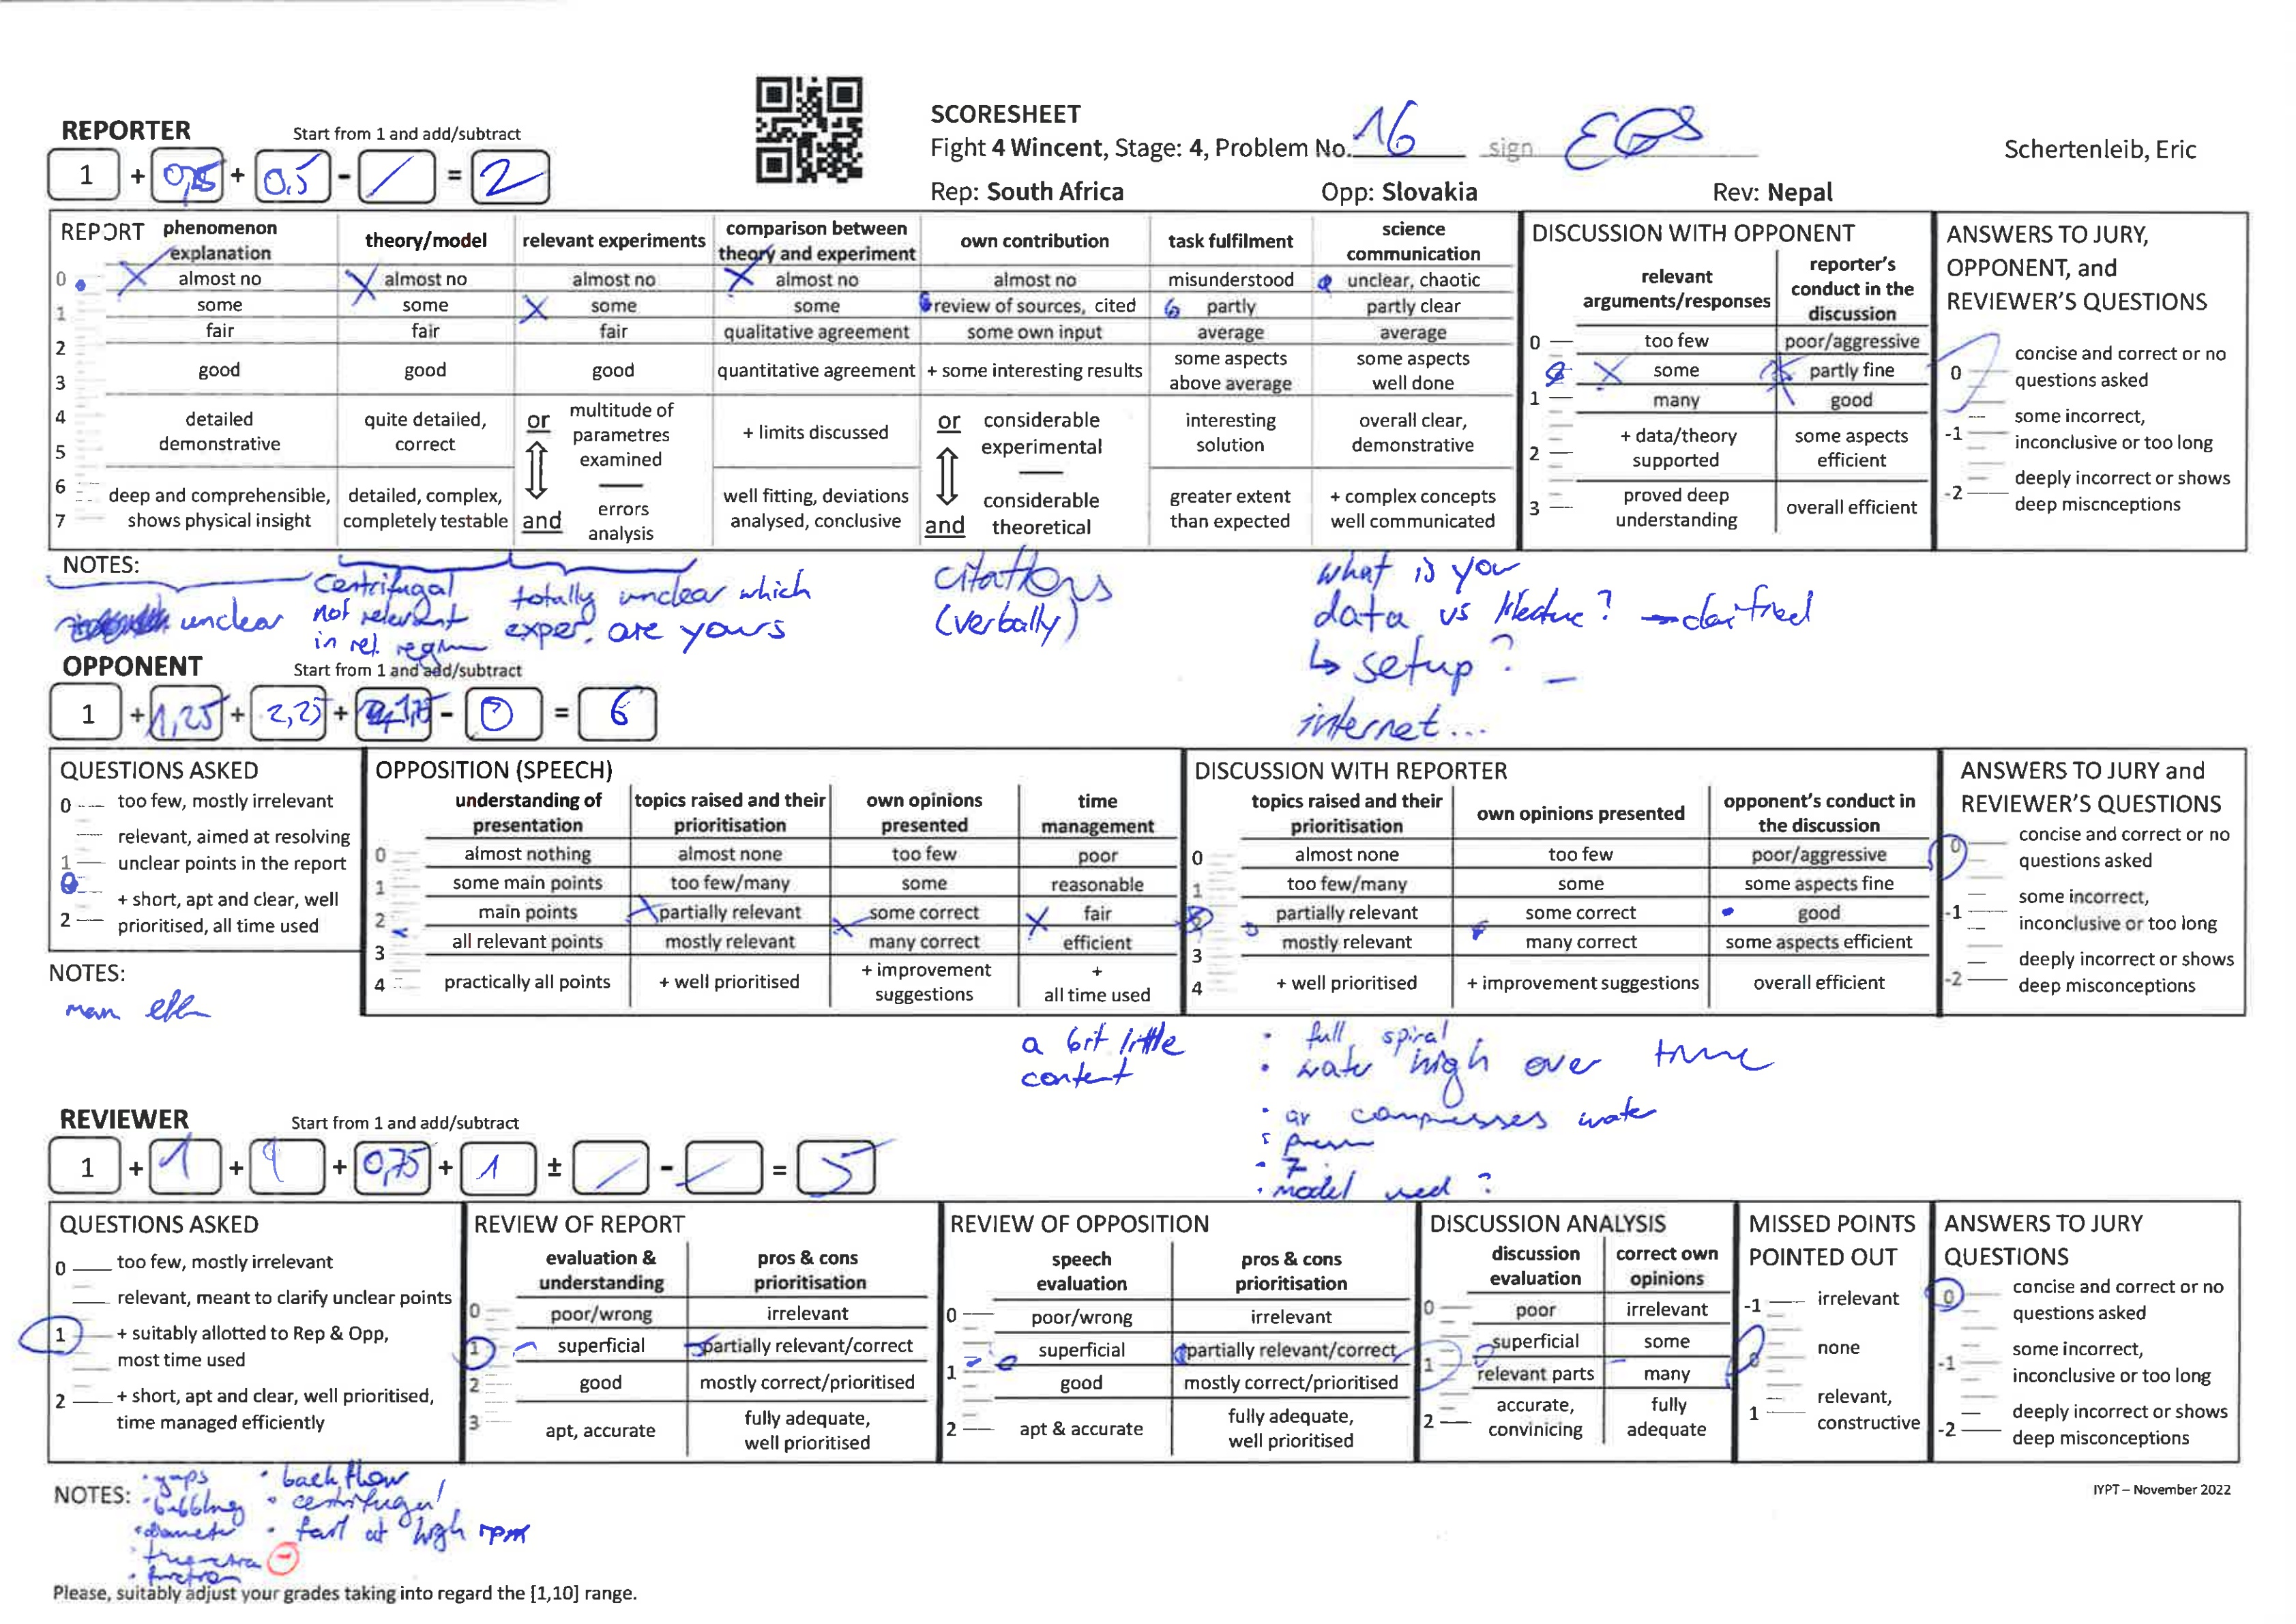 SCORESHEET
Fight 4 Wincent, Stage: 4, Problem No. 16 sign EGS
Schertenleib, Eric
Rep: South Africa Opp: Slovakia Rev: Nepal
REPORTER Start from 1 and add/subtract
1 + 0,75 + 0.5 - / = 2
REPORT
phenomenon explanation
almost no
some
fair
good
detailed demonstrative
deep and comprehensible, shows physical insight
theory/model
almost no
some
fair
good
quite detailed, correct
detailed, complex, completely testable
relevant experiments
almost no
some
fair
good
or multitude of parametres examined
and errors analysis
comparison between theory and experiment
almost no
some
qualitative agreement
quantitative agreement
+ limits discussed
well fitting, deviations analysed, conclusive
own contribution
almost no
review of sources, cited
some own input
+ some interesting results
or considerable experimental
and considerable theoretical
task fulfilment
misunderstood
partly
average
some aspects above average
interesting solution
greater extent than expected
science communication
unclear, chaotic
partly clear
average
some aspects well done
overall clear, demonstrative
+ complex concepts well communicated
0
1
2
3
4
5
6
7
DISCUSSION WITH OPPONENT
relevant arguments/responses
too few
some
many
+ data/theory supported
proved deep understanding
reporter's conduct in the discussion
poor/aggressive
partly fine
good
some aspects efficient
overall efficient
0
1
2
3
ANSWERS TO JURY, OPPONENT, and REVIEWER'S QUESTIONS
0 concise and correct or no questions asked
-1 some incorrect, inconclusive or too long
-2 deeply incorrect or shows deep miscnceptions
NOTES:
unclear
centrifugal
not relevant
in rel. regim
totally unclear which
exper. are yours
citations
(verbally)
what is you
data vs literature? → clarified
↳ setup? –
internet...
OPPONENT Start from 1 and add/subtract
1 + 1,25 + 2,25 + 1,75 - 0 = 6
QUESTIONS ASKED
0 too few, mostly irrelevant
relevant, aimed at resolving
1 unclear points in the report
+ short, apt and clear, well
2 prioritised, all time used
NOTES:
OPPOSITION (SPEECH)
understanding of presentation
almost nothing
some main points
main points
all relevant points
practically all points
topics raised and their prioritisation
almost none
too few/many
partially relevant
mostly relevant
+ well prioritised
own opinions presented
too few
some
some correct
many correct
+ improvement suggestions
time management
poor
reasonable
fair
efficient
+ all time used
0
1
2
3
4
a bit little
content
DISCUSSION WITH REPORTER
topics raised and their prioritisation
almost none
too few/many
partially relevant
mostly relevant
+ well prioritised
own opinions presented
too few
some
some correct
many correct
+ improvement suggestions
opponent's conduct in the discussion
poor/aggressive
some aspects fine
good
some aspects efficient
overall efficient
0
1
3
4
• full spiral
• water high over time
• air compresses water
• model used ?
ANSWERS TO JURY and REVIEWER'S QUESTIONS
0 concise and correct or no questions asked
-1 some incorrect, inconclusive or too long
-2 deeply incorrect or shows deep misconceptions
REVIEWER Start from 1 and add/subtract
1 + 1 + 1 + 0,75 + 1 ± / - / = 5
QUESTIONS ASKED
0 too few, mostly irrelevant
relevant, meant to clarify unclear points
1 + suitably allotted to Rep & Opp, most time used
2 + short, apt and clear, well prioritised, time managed efficiently
REVIEW OF REPORT
evaluation & understanding
poor/wrong
superficial
good
apt, accurate
pros & cons prioritisation
irrelevant
partially relevant/correct
mostly correct/prioritised
fully adequate, well prioritised
0
1
2
3
REVIEW OF OPPOSITION
speech evaluation
poor/wrong
superficial
good
apt & accurate
pros & cons prioritisation
irrelevant
partially relevant/correct
mostly correct/prioritised
fully adequate, well prioritised
0
1
2
DISCUSSION ANALYSIS
discussion evaluation
poor
superficial
relevant parts
accurate, convinicing
correct own opinions
irrelevant
some
many
fully adequate
0
1
2
MISSED POINTS POINTED OUT
-1 irrelevant
0 none
1 relevant, constructive
ANSWERS TO JURY QUESTIONS
0 concise and correct or no questions asked
-1 some incorrect, inconclusive or too long
-2 deeply incorrect or shows deep misconceptions
NOTES:
• gaps
• bubbling
• diameter
• friction
• backflow
• centrifugal
• fast at high rpm
IYPT – November 2022
Please, suitably adjust your grades taking into regard the [1,10] range.